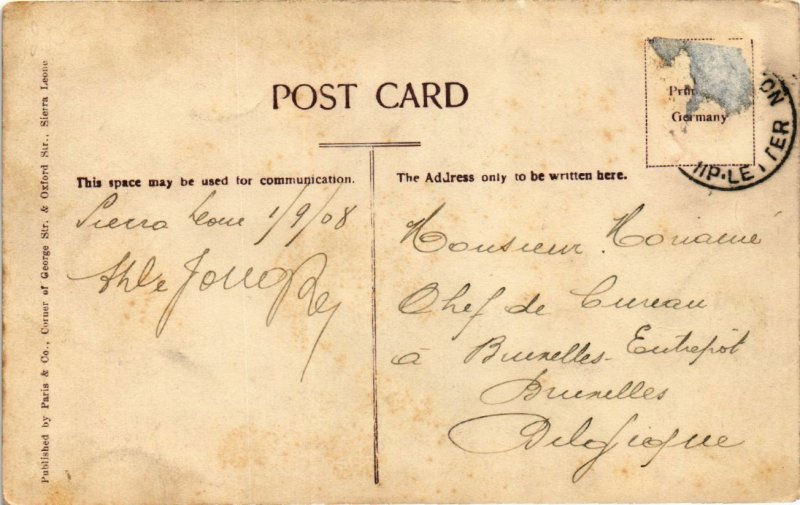 POST CARD
Published by Paris & Co., Corner of George Str. & Oxford Str., Sierra Leone
This space may be used for communication.
Sierra Leone 1/9/08
The Address only to be written here.
Germany
ON
HIP-LETTER
Monsieur
Chef de Bureau
à Bruxelles-Entrepôt
Bruxelles
Belgique